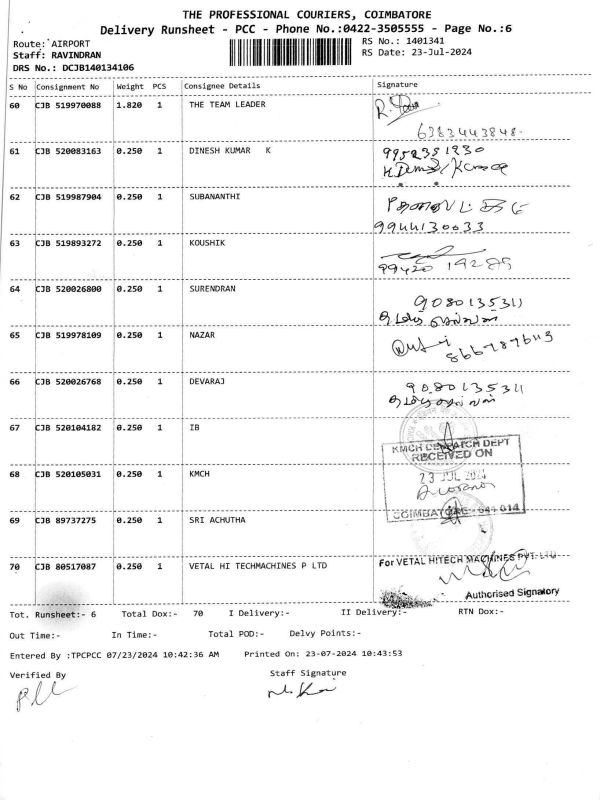 THE PROFESSIONAL COURIERS, COIMBATORE
Delivery Runsheet - PCC - Phone No.:0422-3505555 - Page No.:6
Route: AIRPORT
RS No.: 1401341
Staff: RAVINDRAN
RS Date: 23-Jul-2024
DRS No.: DCJB140134106
S No Consignment No Weight PCS Consignee Details Signature
60 CJB 519970088 1.820 1 THE TEAM LEADER
6383443848
61 CJB 520083163 0.250 1 DINESH KUMAR K
9952351230
62 CJB 519987904 0.250 1 SUBANANTHI
9944130033
63 CJB 519893272 0.250 1 KOUSHIK
99420 19285
64 CJB 520026800 0.250 1 SURENDRAN
9080135311
65 CJB 519978109 0.250 1 NAZAR
66 CJB 520026768 0.250 1 DEVARAJ
9080135311
67 CJB 520104182 0.250 1 IB
KMCH DESPATCH DEPT
RECEIVED ON
68 CJB 520105031 0.250 1 KMCH
23 JUL 2024
COIMBATORE - 641 014
69 CJB 89737275 0.250 1 SRI ACHUTHA
70 CJB 80517087 0.250 1 VETAL HI TECHMACHINES P LTD
For VETAL HITECH MACHINES PVT LTD
Authorised Signatory
Tot. Runsheet:- 6 Total Dox:- 70 I Delivery:- II Delivery:- RTN Dox:-
Out Time:- In Time:- Total POD:- Delvy Points:-
Entered By :TPCPCC 07/23/2024 10:42:36 AM Printed On: 23-07-2024 10:43:53
Verified By Staff Signature